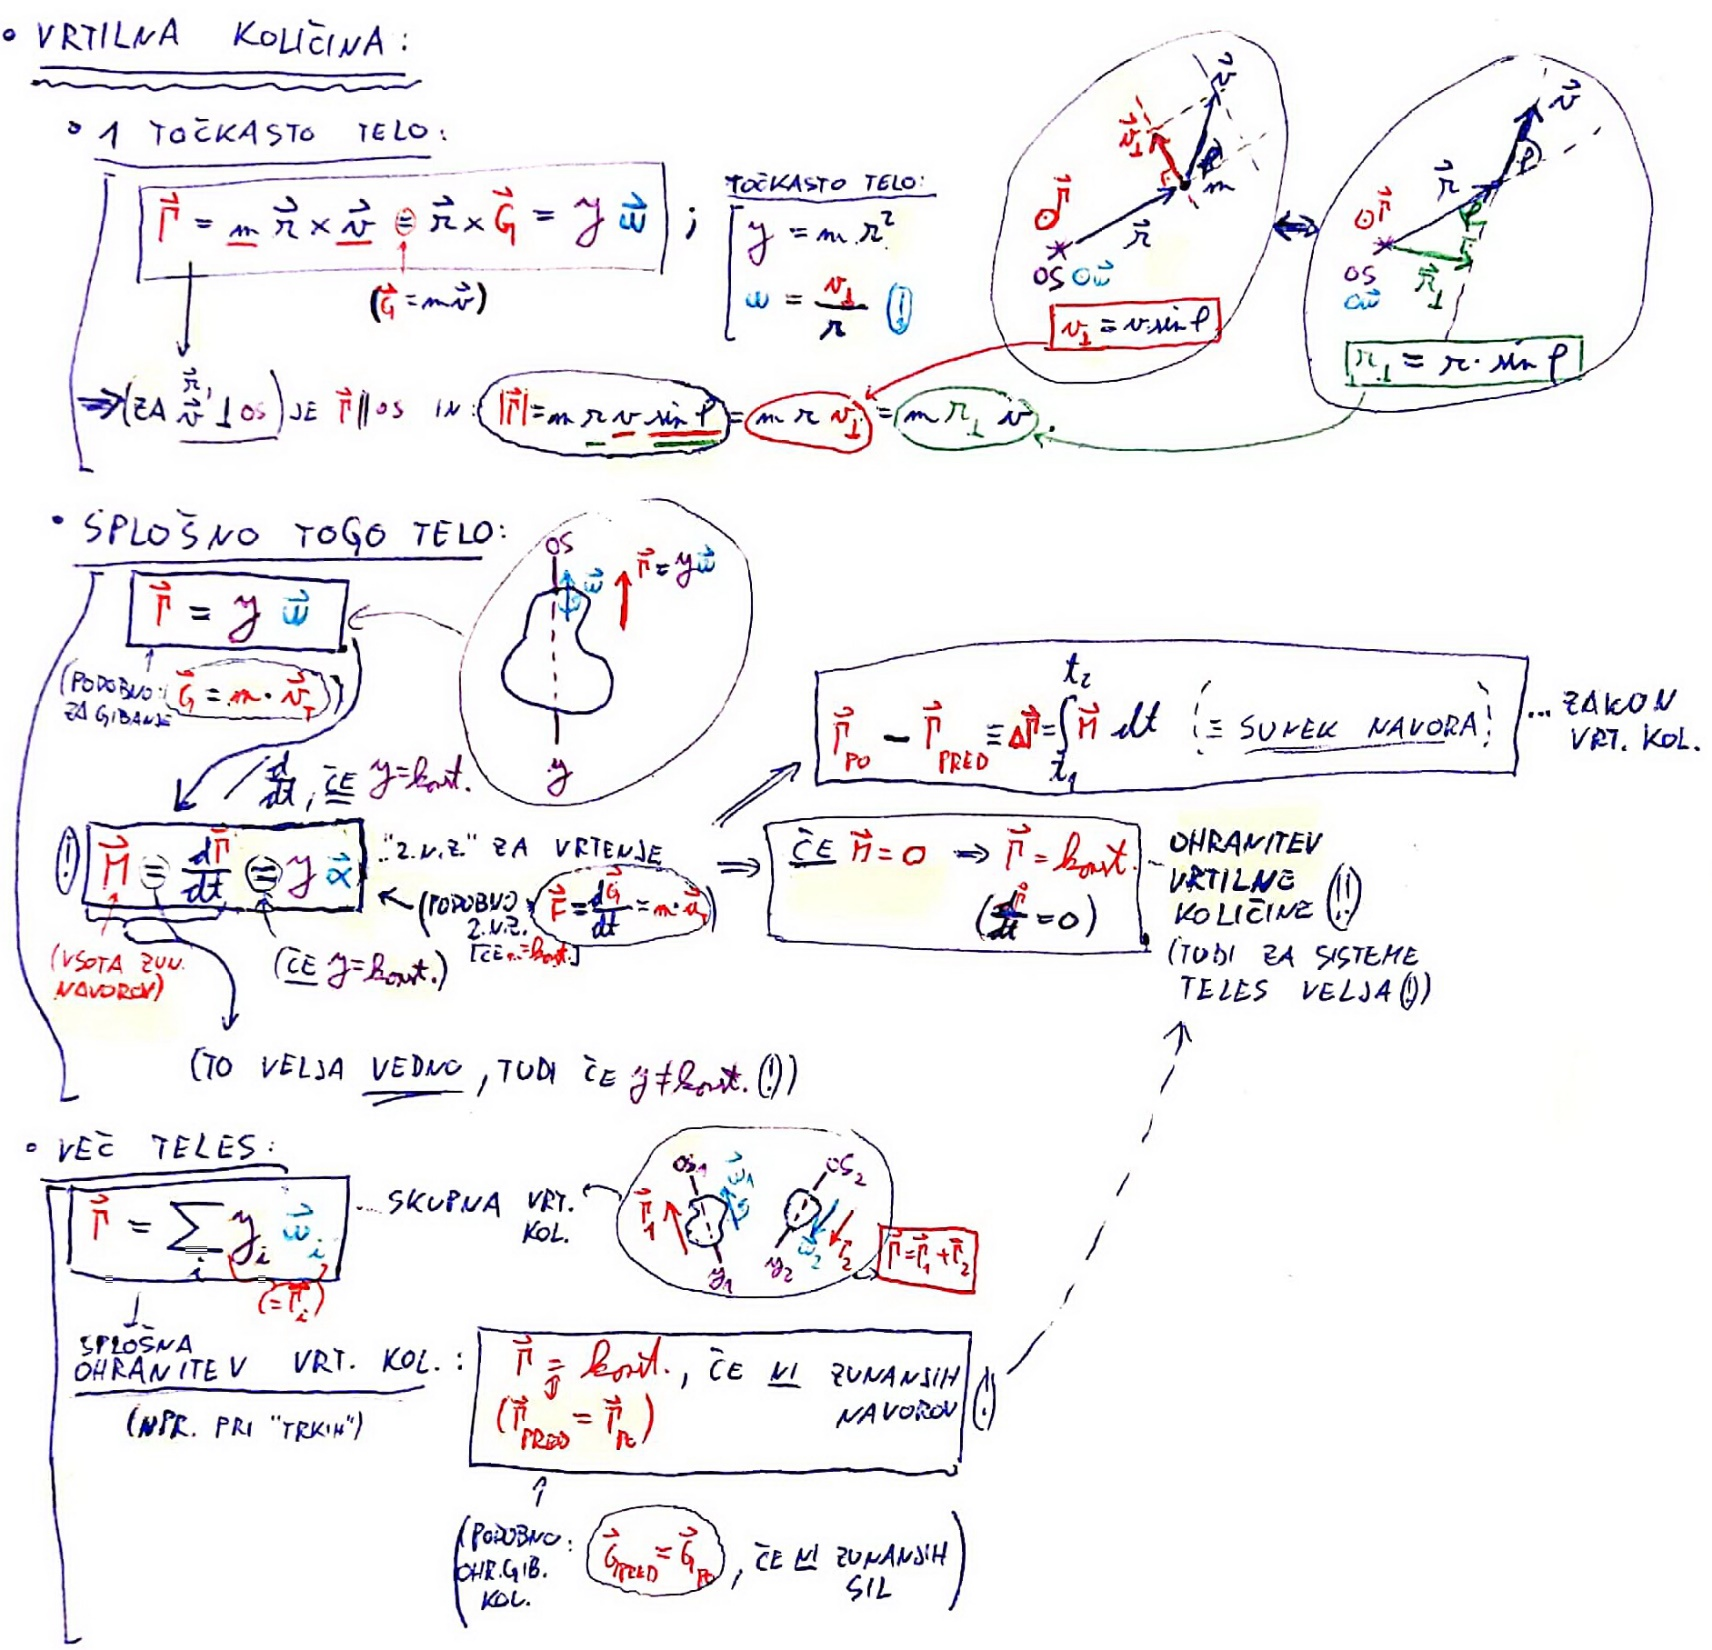 • VRTILNA KOLIČINA:
• 1 TOČKASTO TELO:
Γ⃗ = m r⃗ × v⃗ = r⃗ × G⃗ = y ω⃗ ;
(G⃗ = m v⃗)
TOČKASTO TELO:
y = m r²
ω = v⊥ / r (!)
v⃗
v⃗⊥
φ
m
Γ⃗
r⃗
OS ω⃗
v⊥ = v sin φ
v⃗
φ
r⃗
Γ⃗
φ
OS
ω⃗
r⃗⊥
r⊥ = r · sin φ
⇒ (ZA r⃗, v⃗ ⊥ OS) JE Γ⃗ ∥ OS IN: |Γ⃗| = m r v sin φ = m r v⊥ = m r⊥ v.
• SPLOŠNO TOGO TELO:
Γ⃗ = y ω⃗
(PODOBNO: G⃗ = m · v⃗T)
ZA GIBANJE
OS
ω⃗
Γ⃗ = y ω⃗
y
/ d/dt, ČE y = konst.
(!) M⃗ = dΓ⃗/dt = y α⃗
..."2.N.Z." ZA VRTENJE
(PODOBNO 2.N.Z. F⃗ = dG⃗/dt = m · a⃗T)
[ČE m = konst.]
(VSOTA ZUN. NAVOROV)
(ČE y = konst.)
(TO VELJA VEDNO, TUDI ČE y ≠ konst. (!))
Γ⃗PO − Γ⃗PRED ≡ ΔΓ⃗ = ∫ t₁ t₂ M⃗ dt (≡ SUNEK NAVORA)
... ZAKON
VRT. KOL.
⇒ ČE M⃗ = 0 ⇒ Γ⃗ = konst.
(dΓ⃗/dt = 0)
OHRANITEV
VRTILNE
KOLIČINE (!!)
(TUDI ZA SISTEME
TELES VELJA (!))
• VEČ TELES:
Γ⃗ = Σi yi ω⃗i
(= Γ⃗i)
... SKUPNA VRT.
KOL.
OS₁
ω⃗₁
Γ⃗₁
y₁
OS₂
y₂
ω⃗₂
Γ⃗₂
Γ⃗ = Γ⃗₁ + Γ⃗₂
SPLOŠNA
OHRANITEV VRT. KOL.:
(NPR. PRI "TRKIH")
Γ⃗ = konst., ČE NI ZUNANJIH
NAVOROV (!)
(Γ⃗PRED = Γ⃗PO)
(PODOBNO:
OHR. GIB.
KOL.
G⃗PRED = G⃗PO, ČE NI ZUNANJIH
SIL)